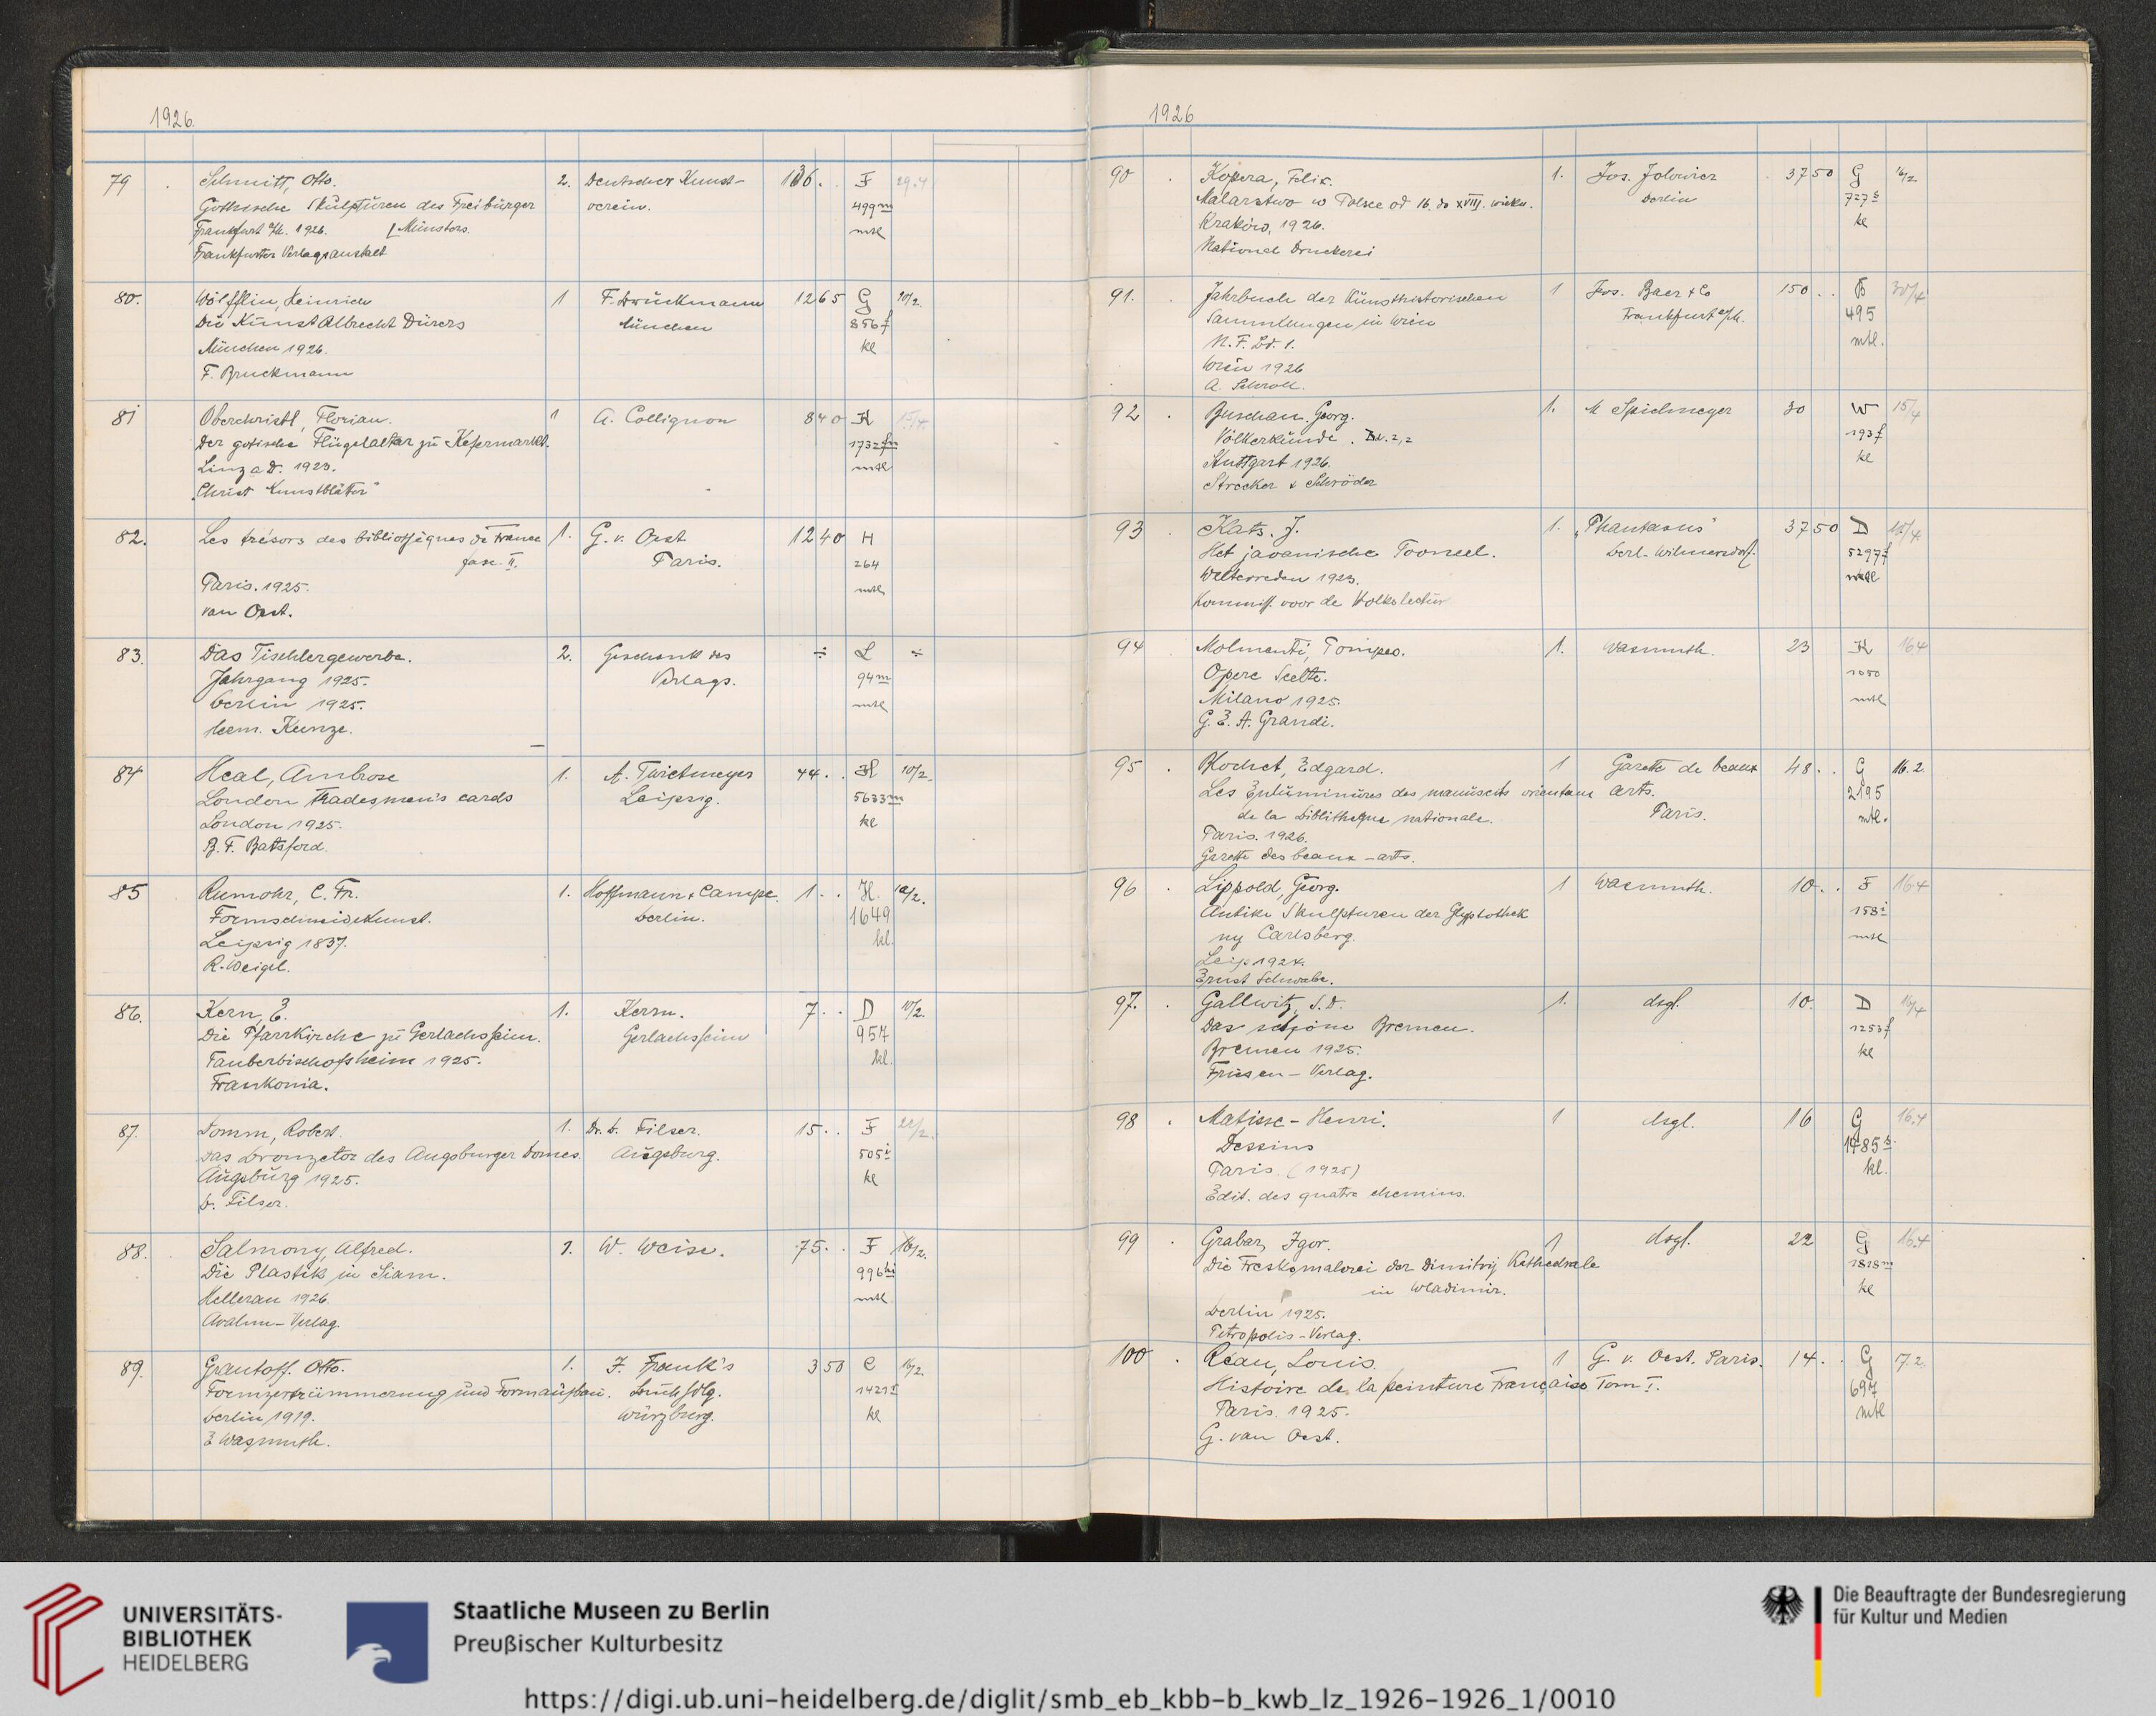 1926.
79 . Schmitt, Otto. 2. Deutscher Kunst- 136. . F 29.4
Gothische Skulpturen des Freiburger verein. 499m
Frankfurt a/M. 1926. [Münsters. mtl
Frankfurter Verlagsanstalt
80. Wölfflin, Heinrich 1 F. Bruckmann 12 65 G 10/2.
Die Kunst Albrecht Dürers München 856f
München 1926. kl
F. Bruckmann
81 Oberchristl, Florian. 1 A. Collignon 8 40 K 15/4
Der gotische Flügelaltar zu Kefermarkt. 1732fm
Linz a D. 1923. mtl
"Christ Kunstblätter"
82. Les trésors des bibliothèques de France 1. G. v. Oest 12 40 H
fasc. II. Paris. 264
Paris. 1925. mtl
van Oest.
83. Das Tischlergewerbe. 2. Geschenk des ÷ L ÷
Jahrgang 1925. Verlags. 94m
Berlin 1925. mtl
Herm. Kunze.
84 Heal, Ambrose 1. A. Twietmeyer 44. . H 10/2.
London tradesmen's cards Leipzig. 5633m
London 1925. kl
B. T. Batsford.
85 Rumohr, C. Fr. 1. Hoffmann & Campe. 1. . H. 10/2.
Formschneidekunst. Berlin. 1649
Leipzig 1837. kl.
R. Weigel.
86. Kern, E. 1. Kern. 7. . D 10/2.
Die Pfarrkirche zu Gerlachsheim. Gerlachsheim 957
Tauberbischofsheim 1925. kl.
Frankonia.
87. Domm, Robert. 1. Dr. B. Filser. 15. . F 22/2.
Das Bronzetor des Augsburger Domes. Augsburg. 505i
Augsburg 1925. kl
B. Filser.
88. Salmony, Alfred. 1. W. Weise. 75. . F 16/2.
Die Plastik in Siam. 996hi
Hellerau 1926. mtl
Avalun-Verlag.
89. Grautoff, Otto. 1. J. Frank's 3 50 C 16/2.
Formzertrümmerung und Formaufbau. Buchhdlg. 1421t
Berlin 1919. Würzburg. kl
E Wasmuth.
1926
90 . Kopera, Felix. 1. Jos. Jolowicz 37 50 G 16/2
Malarstwo w Polsce od 16. do XVIII. wieku. Berlin 727s
Kraków, 1926. kl
National Druckerei
91. . Jahrbuch der Kunsthistorischen 1 Jos. Baer & Co 150 . . B 30/4
Sammlungen in Wien Frankfurt a/M. 495
N. F. Bd. 1. mtl.
Wien 1926
A. Schroll.
92 . Buschan, Georg. 1. M Spielmeyer 30 W 15/4
Völkerkunde. Bd. 2,2 193f
Stuttgart 1926. kl
Strecker & Schröder
93 . Kats, J. 1. "Phantasus" 37 50 D 15/4
Het javanische Tooneel. Berl.-Wilmersdorf. 5297f
Weltevreden 1923. mtl
Kommiss. voor de Volkslectuur
94 . Molmenti, Pompeo. 1. Wasmuth. 23 K 16.4
Opere Scelte. 1050
Milano 1925. mtl
G. E. A. Grandi.
95 . Blochet, Edgard. 1 Gazette de beaux 48. . G 16.2
Les Enluminures des manuscits orientaux arts. 2195
de la Biblitheque nationale. Paris. mtl.
Paris. 1926.
Gazette des beaux-arts.
96 . Lippold, Georg. 1 Wasmuth. 10. . F 16.4
Antike Skulpturen der Glyptothek 158i
ny Carlsberg. mtl
Leip 1924.
Ernst Schwabe.
97. . Gallwitz, S. D. 1. dsgl. 10. D 16/4
Das schöne Bremen. 1253f
Bremen 1925. kl
Friesen-Verlag.
98 . Matisse-Henri. 1 dsgl. 16 G 16.4
Dessins 1485s.
Paris. (1925) kl.
Edit. des quatre chemins.
99 . Grabar, Igor. 1 dsgl. 22 G 16.4
Die Freskomalerei der Dimitrij Kathedrale 1818m
in Wladimir. kl
Berlin 1925.
Petropolis-Verlag.
100 . Réau, Louis. 1 G. v. Oest. Paris. 14. . G 17.2.
Histoire de la peinture Française Tom I. 697
Paris. 1925. mtl
G. van Oest.
UNIVERSITÄTS-
BIBLIOTHEK
HEIDELBERG
Staatliche Museen zu Berlin
Preußischer Kulturbesitz
Die Beauftragte der Bundesregierung
für Kultur und Medien
https://digi.ub.uni-heidelberg.de/diglit/smb_eb_kbb-b_kwb_lz_1926-1926_1/0010